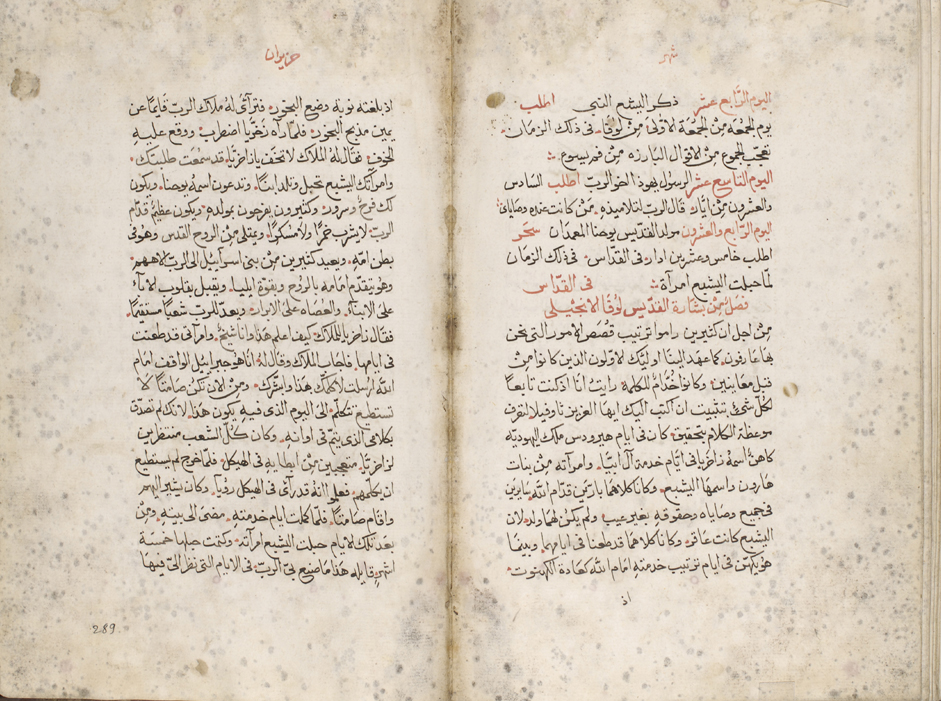 شهر
اليوم الرابع عشر ذكر اليشع النبي اطلب
يوم الجمعة من الجمعة الاولى من لوقا. في ذلك الزمان
تعجب الجموع من الاقوال البارزه من فم يسوع
اليوم التاسع عشر الرسول يهوذا اخو الرب اطلب السادس
والعشرين من ايار قال الرب لتلاميذه. من كانت عنده وصاياي
اليوم الرابع والعشرون مولد القديس يوحنا المعمدان سحر
اطلب خامس وعشرين اذار في القداس. في ذلك الزمان
لما حبلت اليشبع امرأة في القداس
فصل من بشارة القديس لوقا الانجيلي
من اجل ان كثيرين راموا ترتيب قصص الامور التي نحن
بها عارفون. كما عهد الينا اوليك الاولون الذين كانوا من
قبل معاينين. وكانوا خداما للكلمة رايت انا اذ كنت تابعا
لكل شي بتثبيت ان اكتب اليك ايها العزيز تاوفيلا لتعرف
موعظة الكلام بتحقيق كان في ايام هيرودس ملك اليهودية
كاهن اسمه زاخريا في ايام خدمة آل ابيا. وامرأته من بنات
هارون واسمها اليشبع. وكانا كلاهما بارين قدام الله سايرين
في جميع وصاياه وحقوقه بغير عيب ولم يكن لهما ولد لان
اليشبع كانت عاقر. وكانا كلاهما قد طعنا في ايامهما. وبينما
هو يكهن في ايام ترتيب خدمته امام الله كعادة الكهنوت
اذ
حزيران
اذ بلغته نوبة وضع البخور. فترآى له ملاك الرب قايما عن
يمين مذبح البخور. فلما رآه زخريا اضطرب ووقع عليه
الخوف. فقال له الملاك لا تخف يا زاخريا. قد سمعت طلبتك.
وامرأتك اليشبع تحبل وتلد ابنا. وتدعون اسمه يوحنا. ويكون
لك فرح وسرور. وكثيرون يفرحون بمولده. ويكون عظيما قدام
الرب. لا يشرب خمرا ولا مسكرا. ويمتلي من الروح القدس وهو في
بطن امه. ويعيد كثيرين من بني اسرآييل الى الرب الاههم
وهو يتقدم امامه بالروح وبقوة ايليا. ويقبل بقلوب الابآء
على الابناء. والعصاه على الابرار. ويعد للرب شعبا مستقيما.
فقال زاخريا للملاك كيف اعلم هذا وانا شيخ. وامرأتي قد طعنت
في ايامها. فاجاب الملاك وقال له انا هو جبراييل الواقف امام
الله ارسلت لاكلمك بهذا وابشرك. ومن الان تكون صامتا لا
تستطيع تتكلم الى اليوم الذي فيه يكون هذا. لانك لم تصدق
بكلامي الذي يتم في اوانه. وكان كل الشعب منتظرين
لزاخريا. متعجبين من ابطايه في الهيكل. فلما خرج لم يستطيع
ان يكلمهم. فعلموا انه قد رآى في الهيكل رؤيا. وكان يشير اليهم
واقام صامتا. فلما كملت ايام خدمته مضى الى بيته. ومن
بعد تلك الايام حبلت اليشبع امرأته. وكتمت حبلها خمسة
اشهر قايلة هذا ما صنع بي الرب في الايام التي نظر اليّ فيها
289